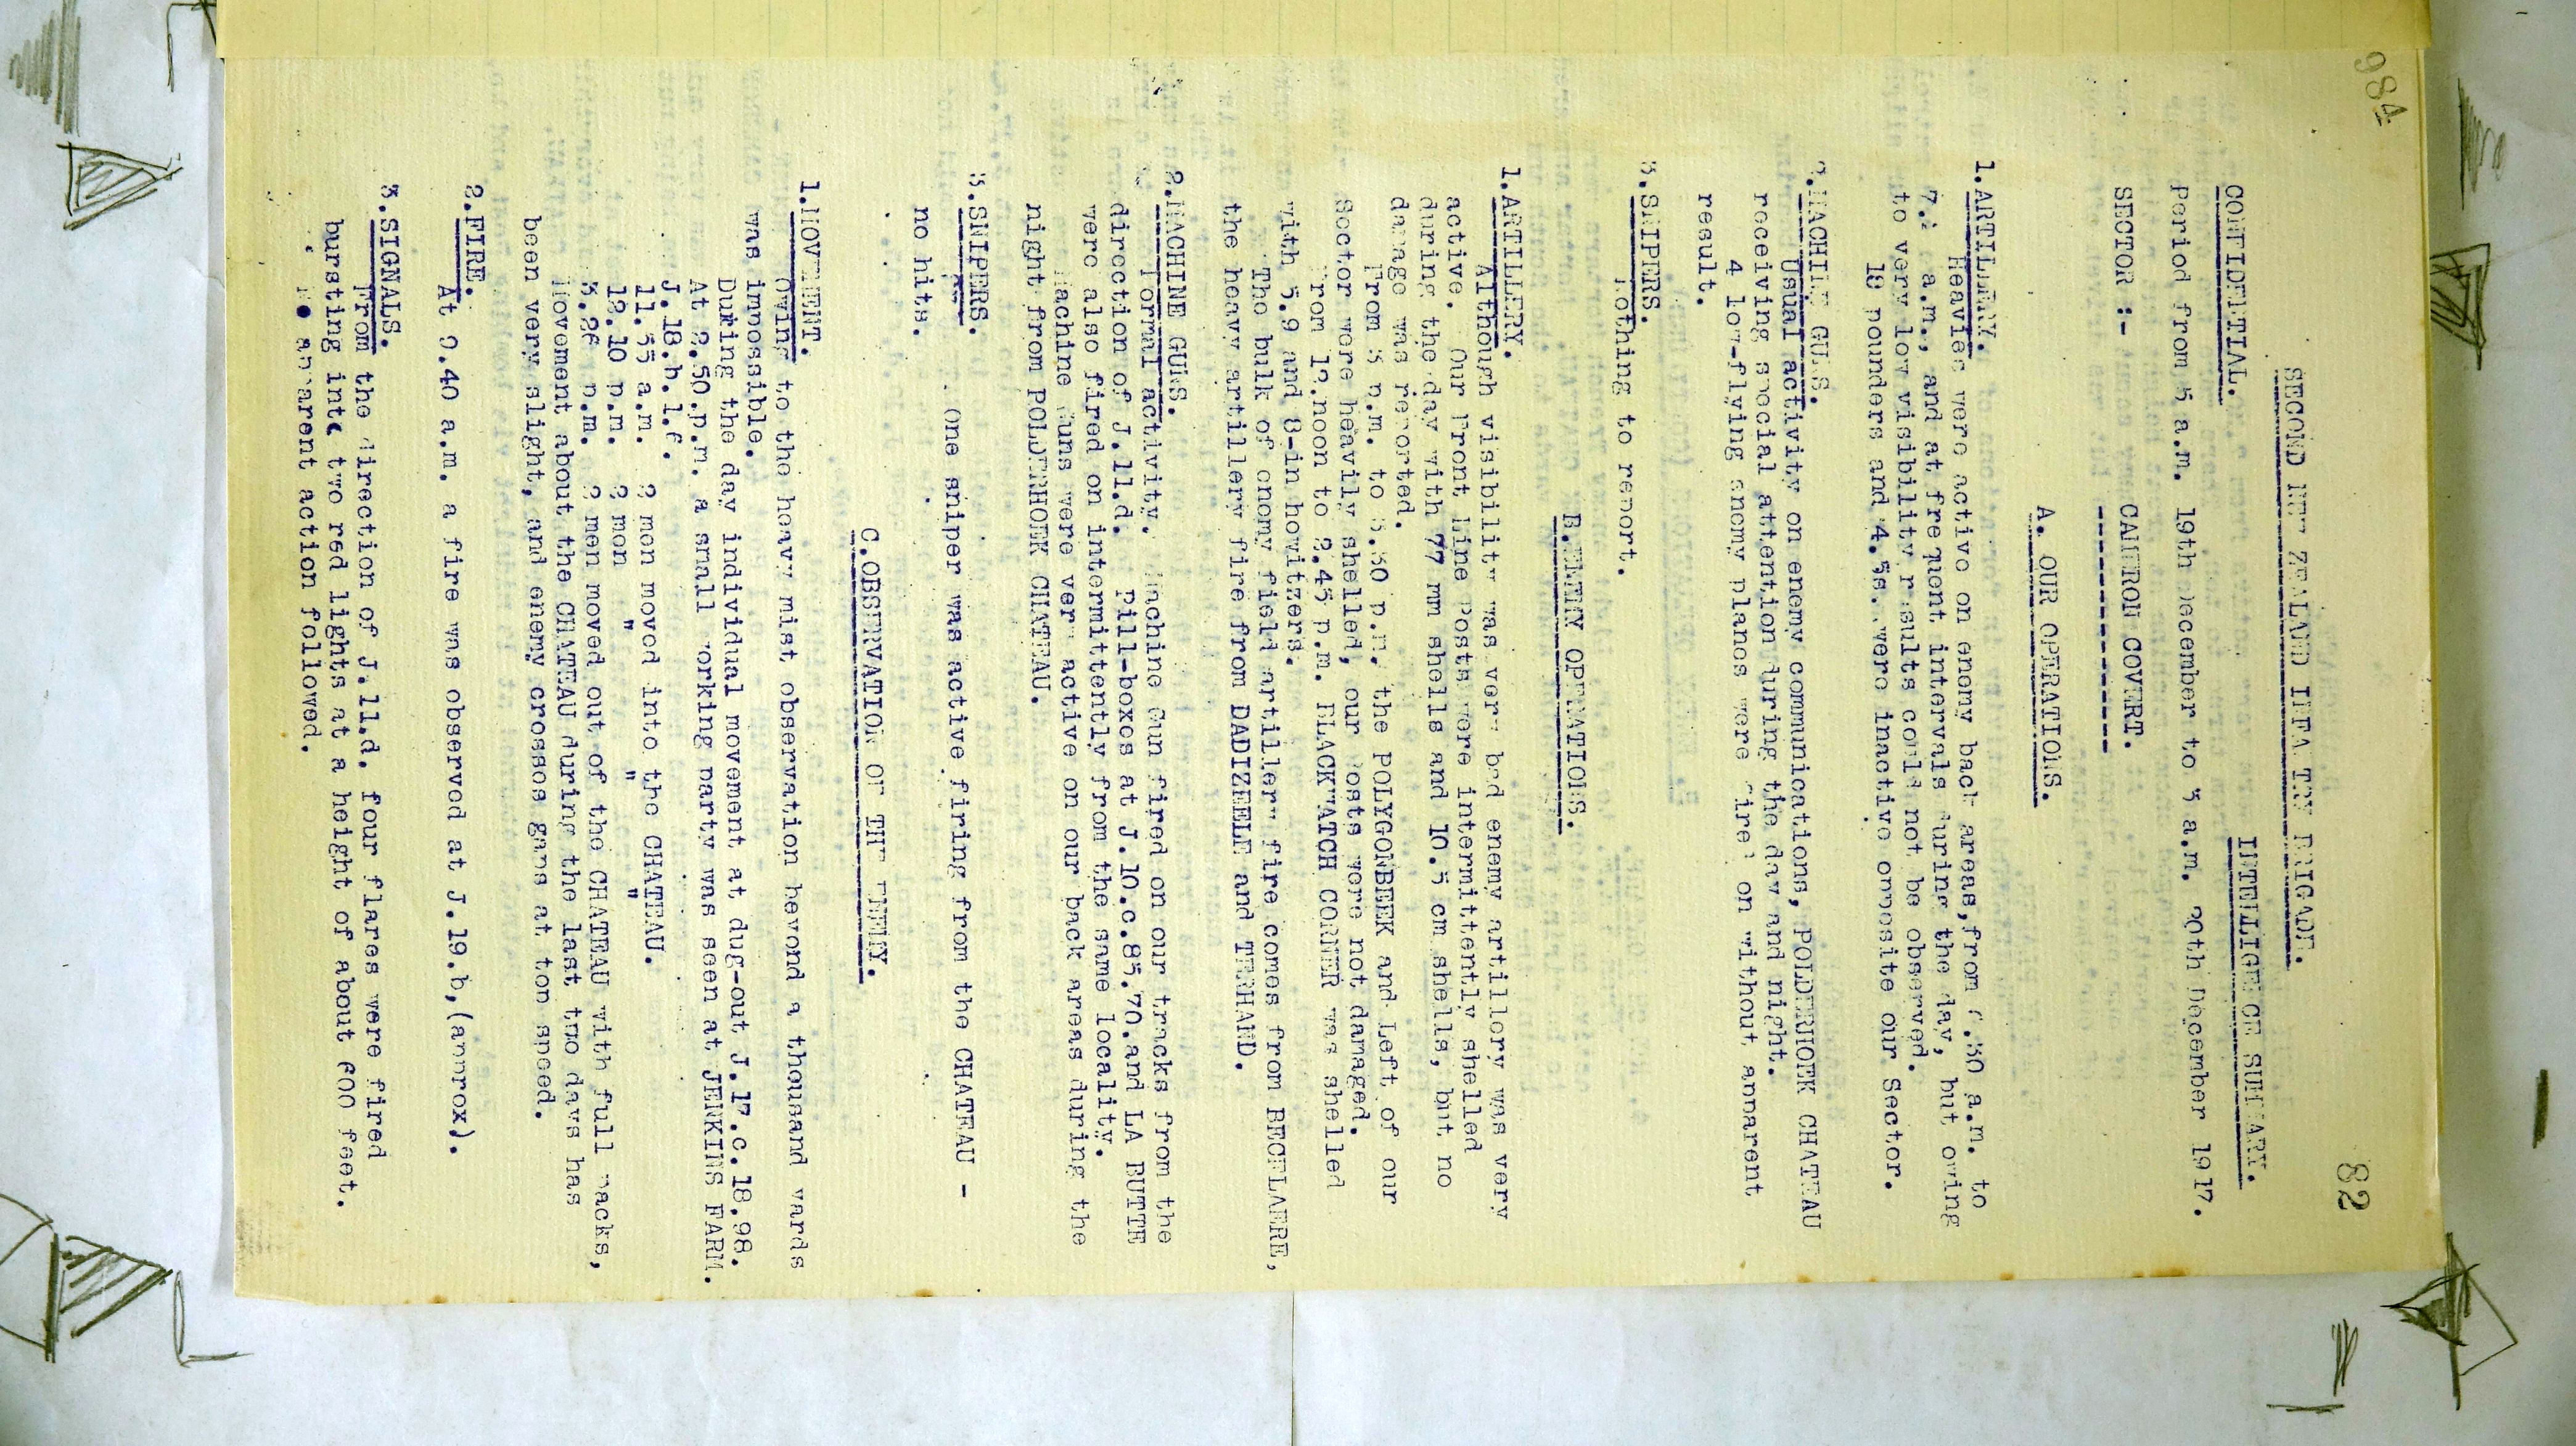 984
82
SECOND NEW ZEALAND INFANTRY BRIGADE.
CONFIDENTIAL. INTELLIGENCE SUMMARY.
Period from 5 a.m. 19th December to 5 a.m. 20th December 1917.
SECTOR :- CAMERON COVERT.
A. OUR OPERATIONS.
1.ARTILLERY.
Heavies were active on enemy back areas, from 6.30 a.m. to
a.m., and at frequent intervals during the day, but owing
to very low visibility results could not be observed.
18 pounders and 4.5s. were inactive opposite our Sector.
2.MACHINE GUNS.
Usual activity on enemy communications, POLDERHOEK CHATEAU
receiving special attention during the day and night.
4 low-flying enemy planes were fired on without apparent
result.
3.SNIPERS.
Nothing to report.
B.ENEMY OPERATIONS.
1.ARTILLERY.
Although visibility was very bad enemy artillery was very
active. Our Front Line Posts were intermittently shelled
during the day with 77 mm shells and 10.5 cm shells, but no
damage was reported.
From 3 p.m. to 3.30 p.m. the POLYGONBEEK and Left of our
Sector were heavily shelled, our Posts were not damaged.
From 12.noon to 2.45 p.m. BLACKWATCH CORNER was shelled
with 5.9 and 8-in howitzers.
The bulk of enemy field artillery fire comes from BECELAERE,
the heavy artillery fire from DADIZEELE and TERHAND.
2.MACHINE GUNS.
Normal activity. Machine Gun fired on our tracks from the
direction of J.11.d. Pill-boxes at J.10.c.85.70.and LA BUTTE
were also fired on intermittently from the same locality.
Machine Guns were very active on our back areas during the
night from POLDERHOEK CHATEAU.
3.SNIPERS.
One sniper was active firing from the CHATEAU -
no hits.
C.OBSERVATION OF THE ENEMY.
1.MOVEMENT.
Owing to the heavy mist observation beyond a thousand yards
was impossible.
During the day individual movement at dug-out J.17.c.18.98.
At 2.50.p.m. a small working party was seen at JENKINS FARM.
J.18.b.1.6.
11.35 a.m. 2 men moved into the CHATEAU.
12.10 p.m. 2 men " " "
3.26 p.m. 2 men moved out of the CHATEAU with full packs,
Movement about the CHATEAU during the last two days has
been very slight, and enemy crosses gaps at top speed.
2.FIRE.
At 9.40 a.m. a fire was observed at J.19.b,(approx).
3.SIGNALS.
From the direction of J.11.d. four flares were fired
bursting into two red lights at a height of about 600 feet.
No apparent action followed.